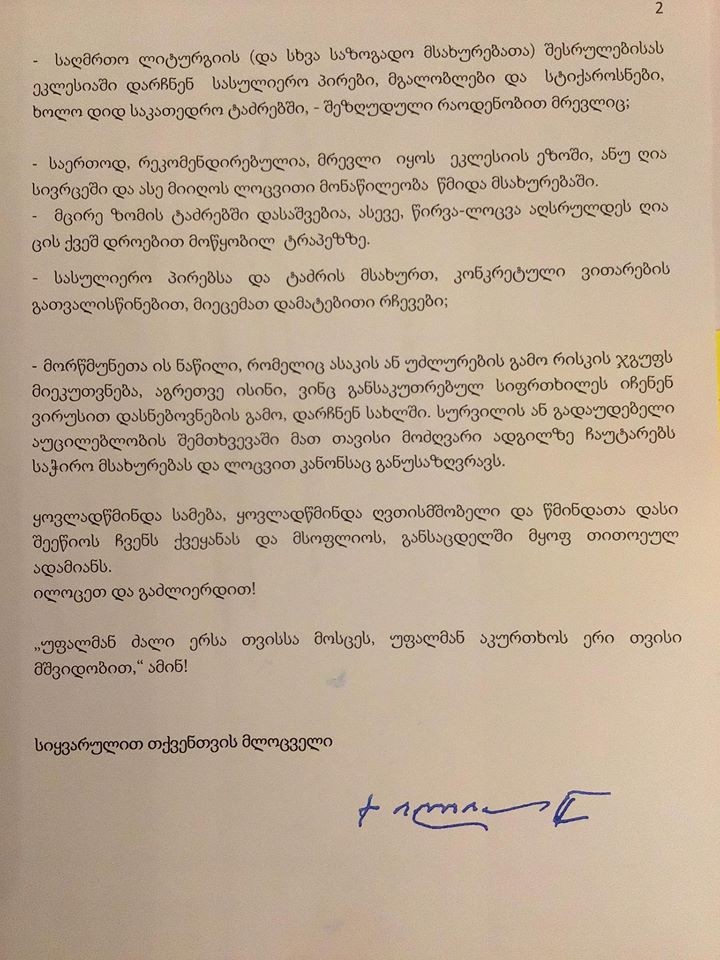 2
- საღმრთო ლიტურგიის (და სხვა საზოგადო მსახურებათა) შესრულებისას
ეკლესიაში დარჩნენ სასულიერო პირები, მგალობლები და სტიქაროსნები,
ხოლო დიდ საკათედრო ტაძრებში, - შეზღუდული რაოდენობით მრევლიც;
- საერთოდ, რეკომენდირებულია, მრევლი იყოს ეკლესიის ეზოში, ანუ ღია
სივრცეში და ასე მიიღოს ლოცვითი მონაწილეობა წმიდა მსახურებაში.
- მცირე ზომის ტაძრებში დასაშვებია, ასევე, წირვა-ლოცვა აღსრულდეს ღია
ცის ქვეშ დროებით მოწყობილ ტრაპეზზე.
- სასულიერო პირებსა და ტაძრის მსახურთ, კონკრეტული ვითარების
გათვალისწინებით, მიეცემათ დამატებითი რჩევები;
- მორწმუნეთა ის ნაწილი, რომელიც ასაკის ან უძლურების გამო რისკის ჯგუფს
მიეკუთვნება, აგრეთვე ისინი, ვინც განსაკუთრებულ სიფრთხილეს იჩენენ
ვირუსით დასნებოვნების გამო, დარჩნენ სახლში. სურვილის ან გადაუდებელი
აუცილებლობის შემთხვევაში მათ თავისი მოძღვარი ადგილზე ჩაუტარებს
საჭირო მსახურებას და ლოცვით კანონსაც განუსაზღვრავს.
ყოვლადწმინდა სამება, ყოვლადწმინდა ღვთისმშობელი და წმინდათა დასი
შეეწიოს ჩვენს ქვეყანას და მსოფლიოს, განსაცდელში მყოფ თითოეულ
ადამიანს.
ილოცეთ და გაძლიერდით!
„უფალმან ძალი ერსა თვისსა მოსცეს, უფალმან აკურთხოს ერი თვისი
მშვიდობით,“ ამინ!
სიყვარულით თქვენთვის მლოცველი